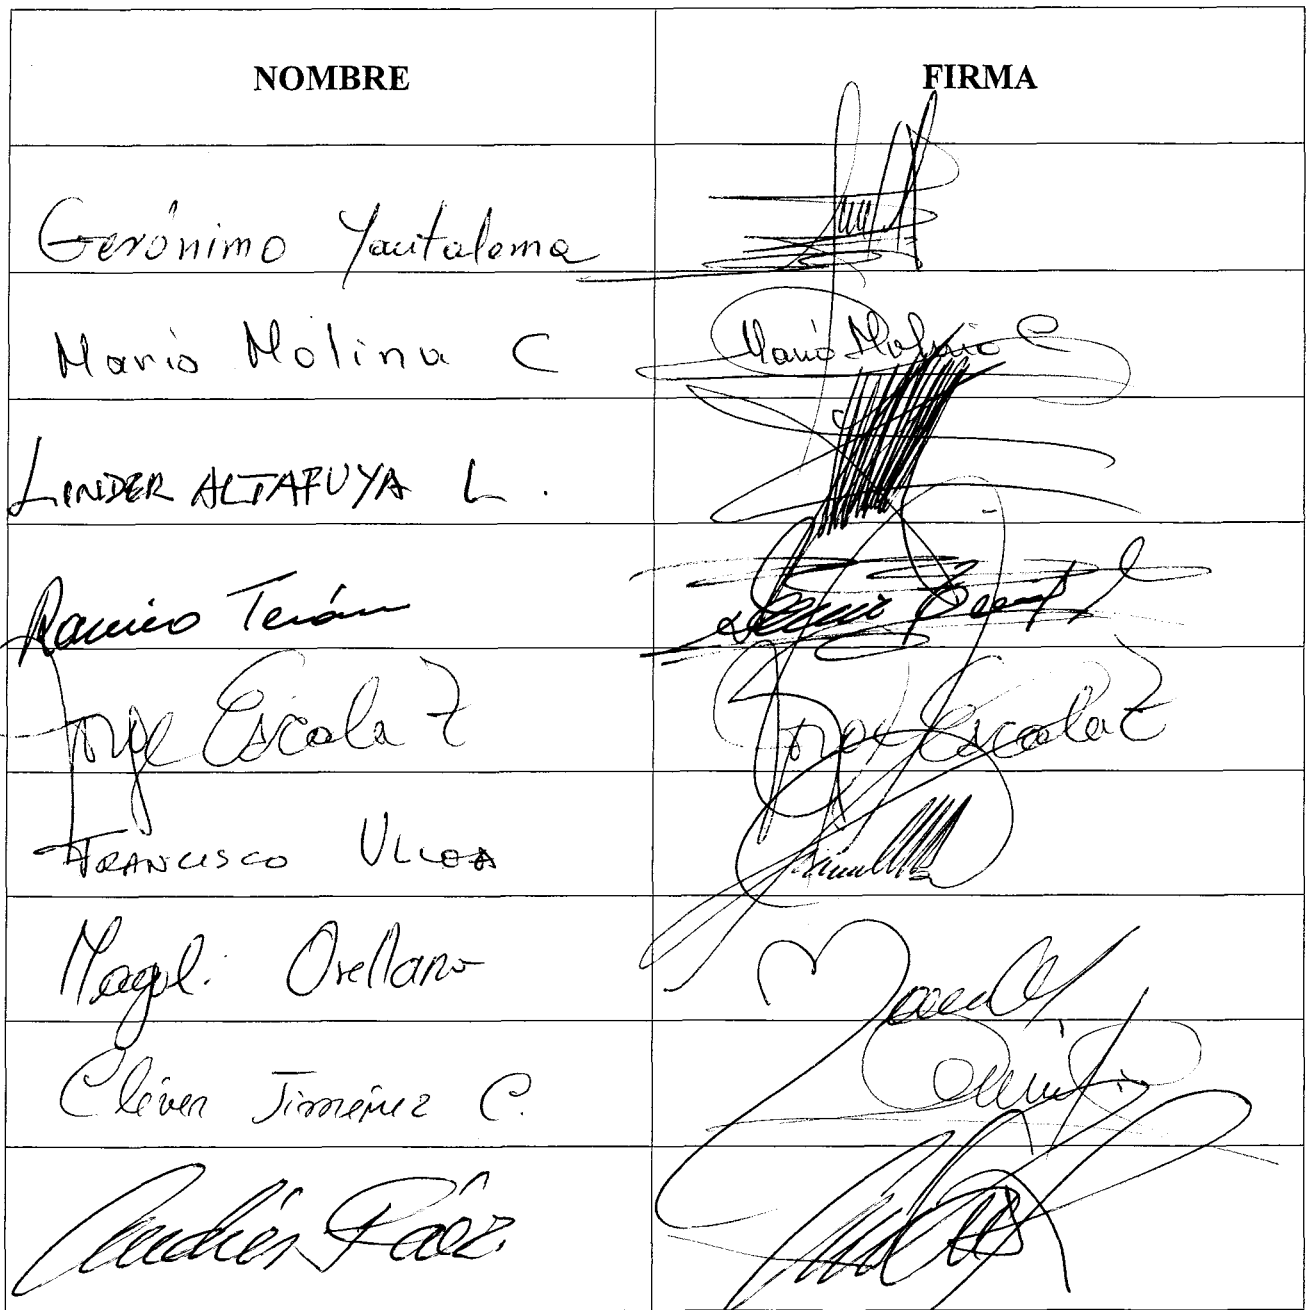 NOMBRE FIRMA
Gerónimo Yantalema
Mario Molina C Mario Molina C
LINDER ALTAFUYA L.
Ramiro Terán
Jorge Escala Z Jorge Escala Z
FRANCISCO ULLOA
Magali Orellana
Cléver Jiménez C.
Andrés Páez